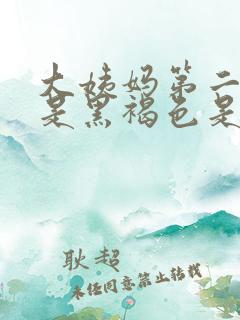 大姨妈第二
是黑褐色是
耿超
未经同意禁止转载